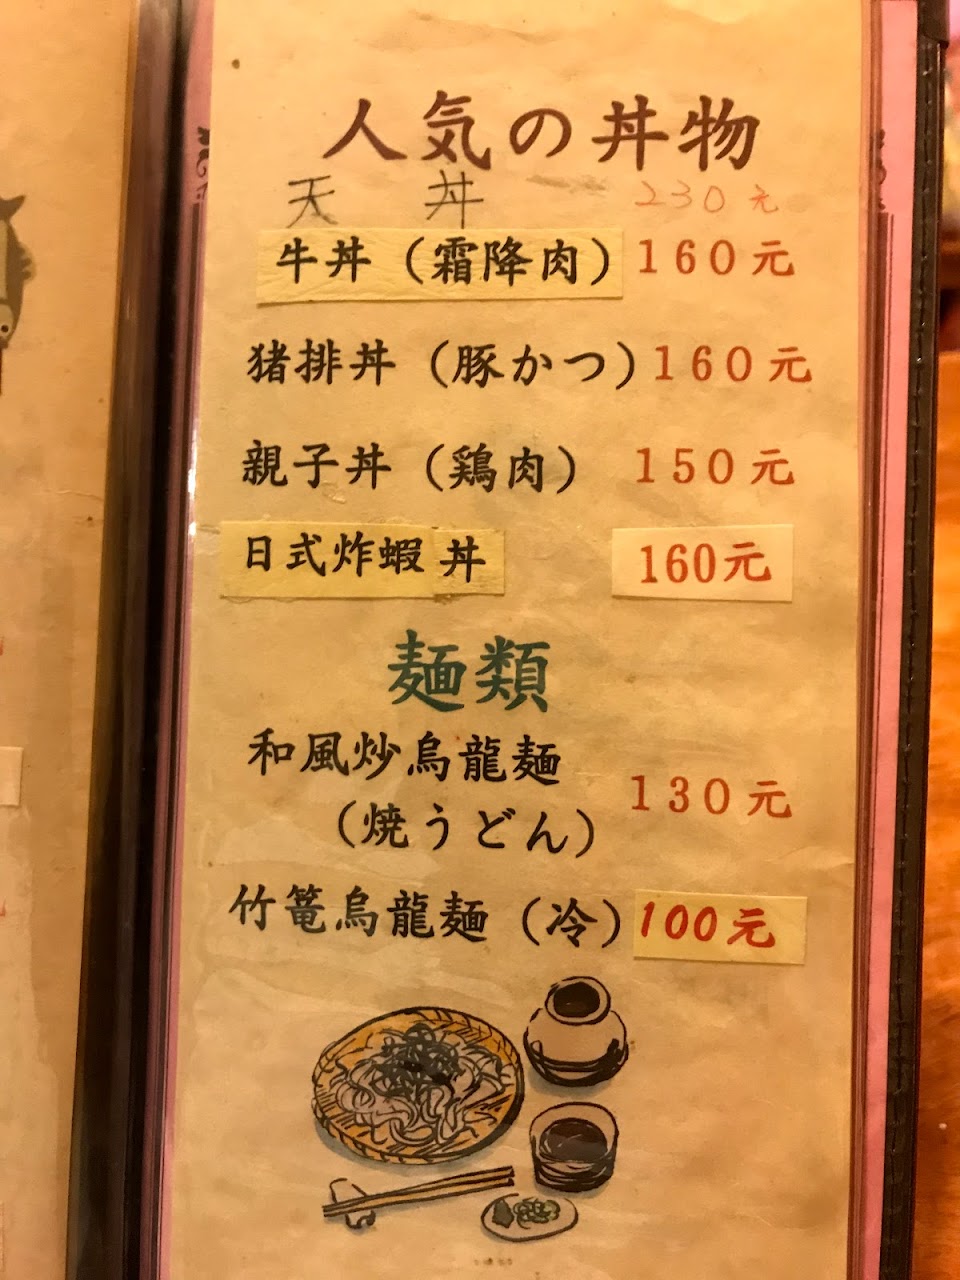 人気の丼物
天 丼 230元
牛丼（霜降肉） 160元
猪排丼（豚かつ） 160元
親子丼（鶏肉） 150元
日式炸蝦丼 160元
麺類
和風炒烏龍麺
（焼うどん） 130元
竹篭烏龍麺（冷） 100元